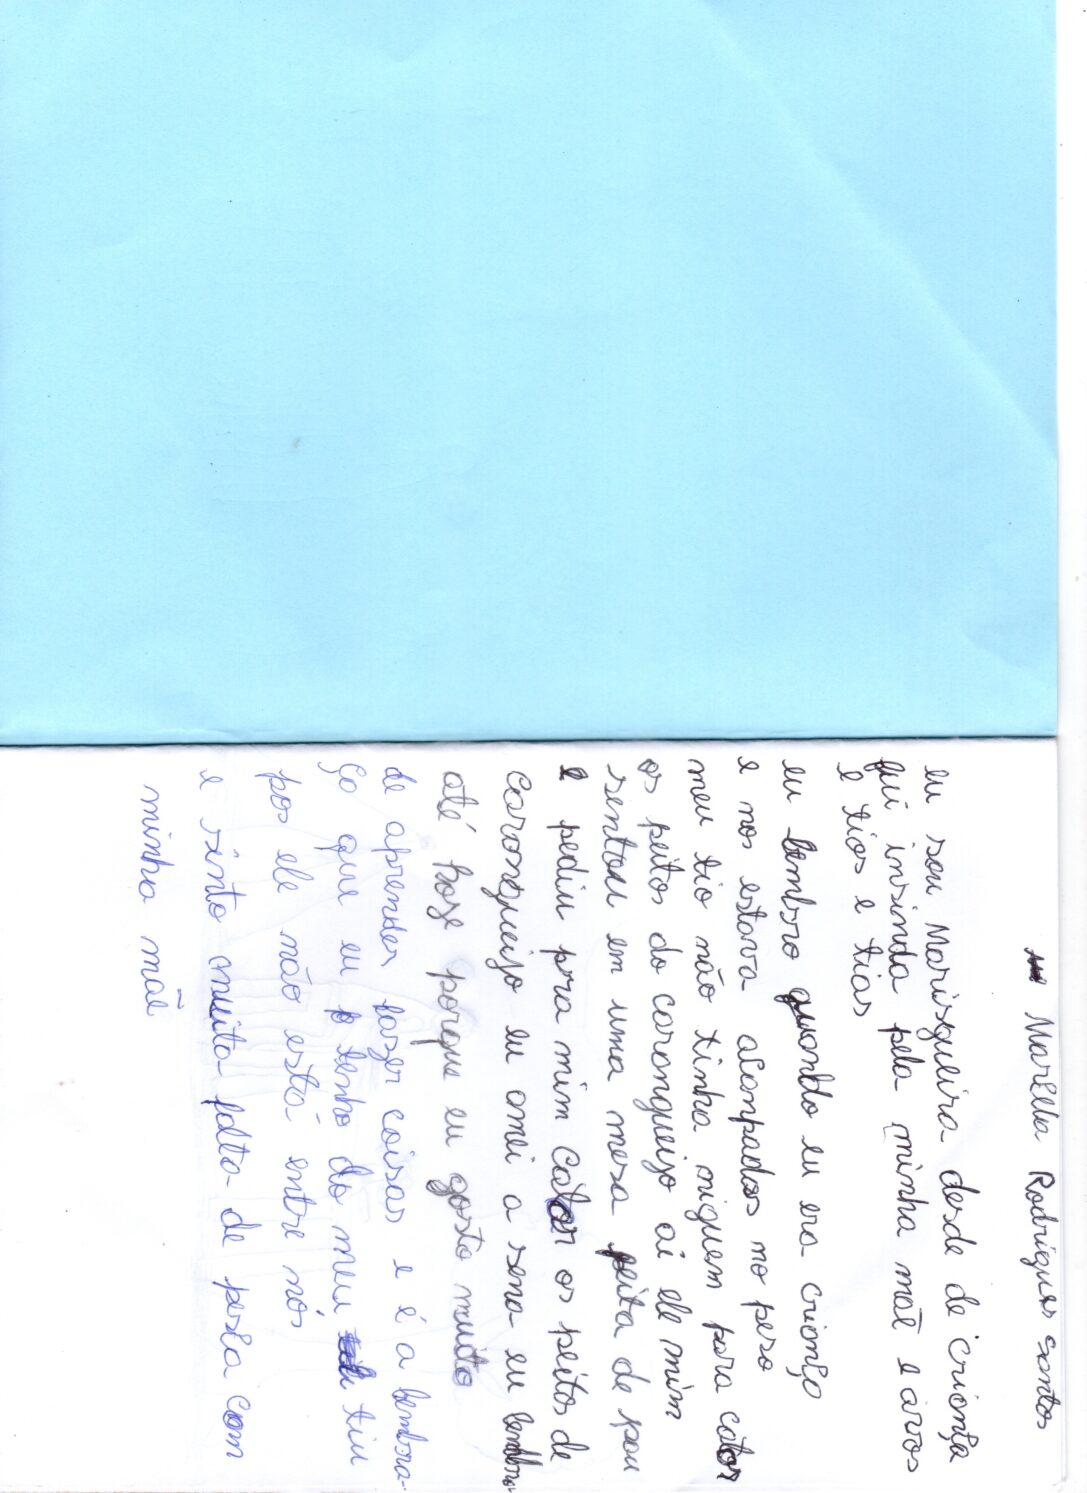 Marella Rodrigues santos
eu sou Marisqueira desde de criança
fui insinda pela minha mãe e avos
e tios e tias
eu lembro quando eu era criança
e nos estava acampados no peso
meu tio não tinha niguem para cator
os peitos do caranguejo ai ele mim
sentou em uma mesa feita de pau
e pediu pra mim cator os peitos de
caranguejo eu amei a sena eu lembro
até hoje porque eu gosto muito
de aprender fazer coisas e é a lembra-
ço que eu tenho do meu tiu
pos ele não está entre nós
e sinto muita falta de pesca com
minha mãe